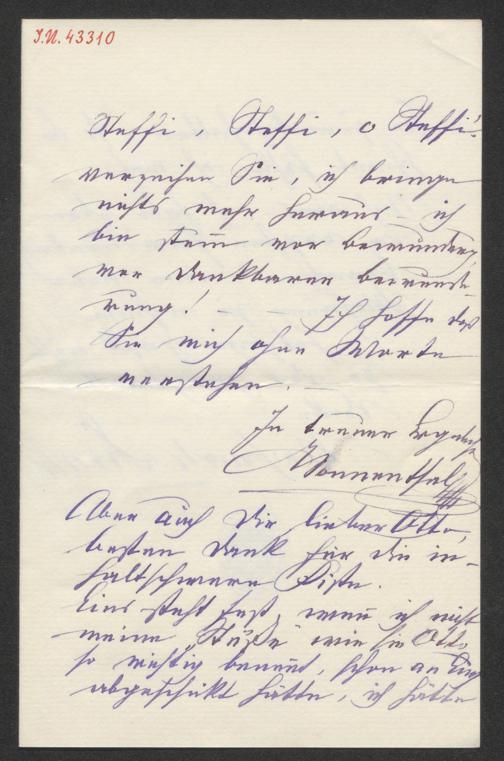 J.N. 43310
Steffi, Steffi, o Steffi!
verzeihen Sie, ich bringe
nichts mehr heraus – ich
bin stum vor Bewunderg,
vor dankbarer Bewunde-
rung! – – Ich hoffe daß
Sie mich ohne Worte
verstehen. –
In treuer Ergebenh
Sonnenthal
Aber auch Dir lieber Otto,
besten Dank für die in-
haltschwere Kiste.
Eins steht fest, wenn ich nicht
meine "Füße" wie sie Otto
so richtig benennt, schon an
abgeschikt hätte, ich hätte